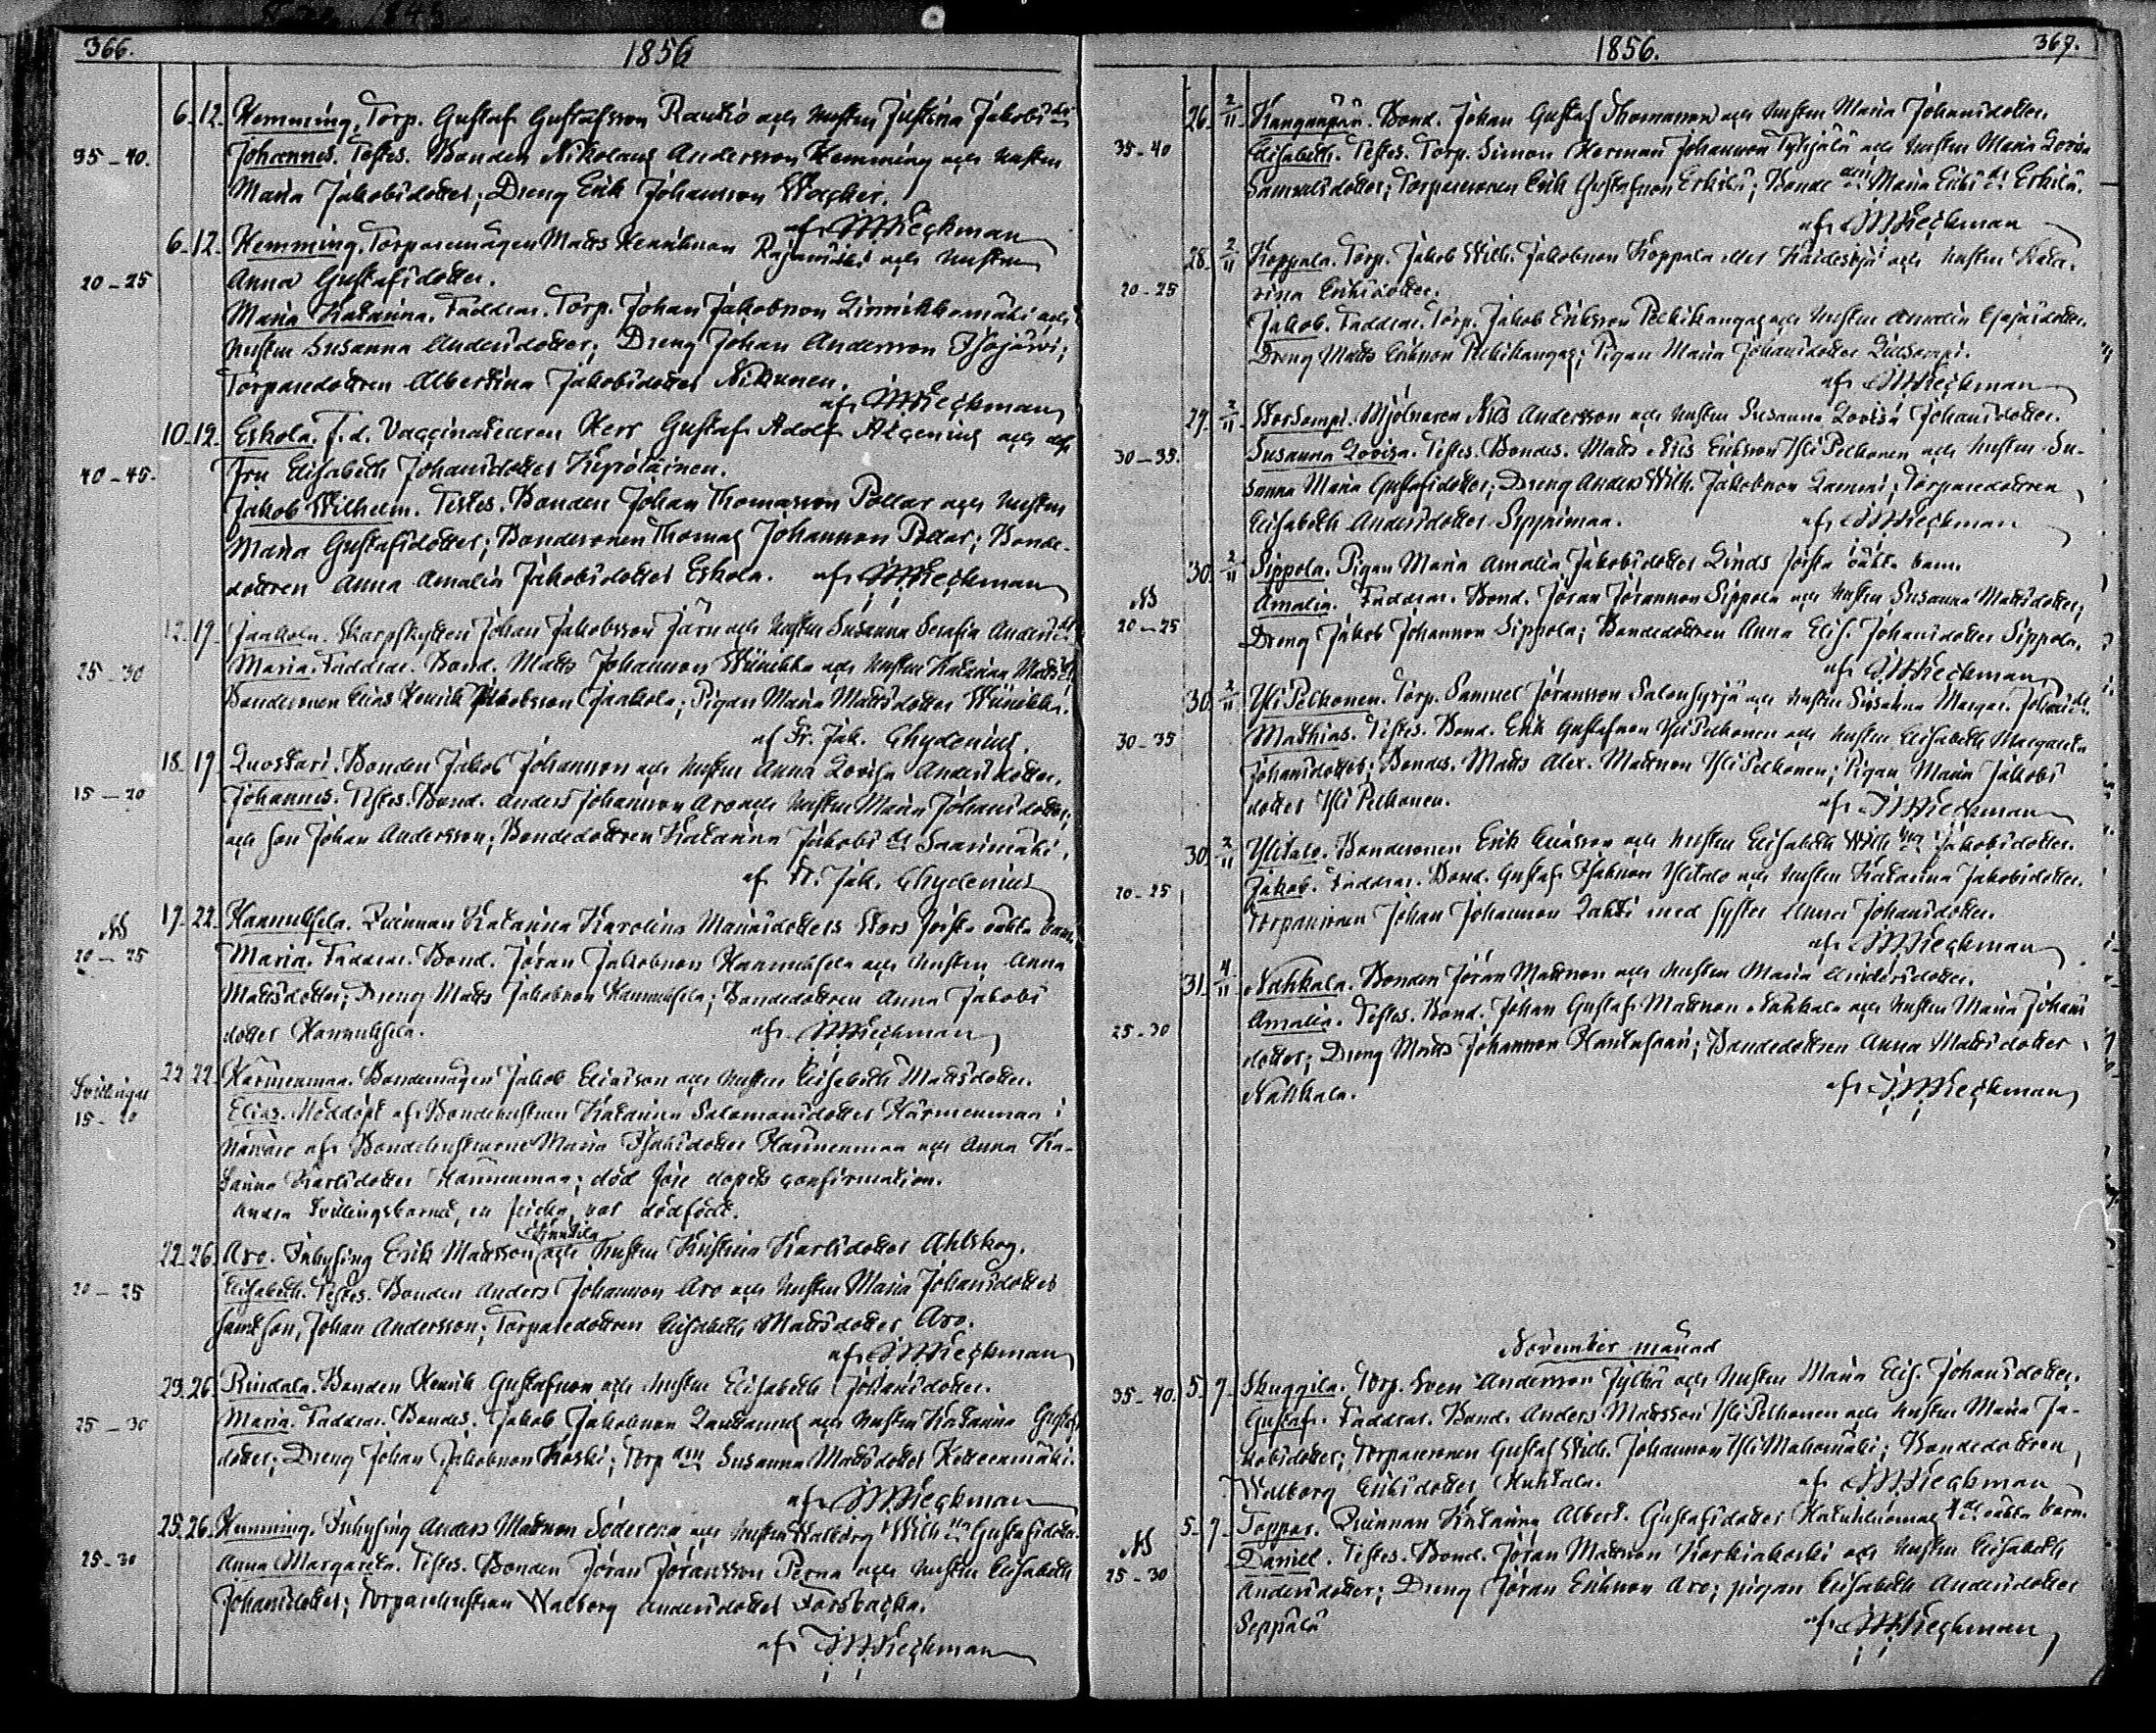 366.
1856
6. 12. Hemming. Torp. Gustaf Gustafsson Rautio och hustru Justina Jakobsdr
35-40. Johannes. Testes. Bonden Nikolaus Andersson Hemming och hustru
Maria Jakobsdotter; Dreng Erik Johansson Wacker.
af JWFleckman
6. 12. Hemming. Torparemågen Matts Henriksson Rajamäki och hustru
20-25 Anna Gustafsdotter.
Maria Katarina. Faddrar. Torp. Johan Jakobsson Linnikkomäki och
hustru Susanna Andersdotter; Dreng Johan Andersson Isojärvi;
Torparedottren Albertina Jakobsdotter Nikunen.
af
10. 12. Eskola. F. d. Vaccinateuren Herr Gustaf Adolf Alcenius och
40-45. fru Elisabeth Johansdotter Kyrolainen.
Jakob Wilhelm. Testes. Bonden Johan Thomasson Pollar och hustru
Maria Gustafsdotter; Bondesonen Thomas Johansson Pollar; Bonde-
dottren Anna Amalia Jakobsdotter Eskola. af
12. 19. Jaakola. Skarpskytten Johan Jakobsson Järn och hustru Susanna Serafia Andersdr
25-30 Maria. Faddrar. Bond. Matts Johansson Wiinikka och hustru Katarina Mattsdr
Bondesonen Elias Henrik Jakobsson Jaakola; Pigan Maria Mattsdotter Wiinikka.
af Fr. Jak. Chydenius.
18. 19. Luostari. Bonden Jakob Johansson och hustru Anna Lovisa Andersdotter.
15-20 Johannes. Testes. Bond. Anders Johansson Aro och hustru Maria Johansdotter;
och son Johan Andersson; Bondedottren Katarina Jakobs dr Saarimäki.
af Fr. Jak. Chydenius
17. 22. Hannuksela. Quinnan Katarina Karolina Mariasdotters Stors första oäkta barn.
20-25 Maria. Faddrar. Bond. Jöran Jakobsson Hannuksela och hustru Anna
Mattsdotter; Dreng Matts Jakobsson Hannuksela; Bondedottren Anna Jakobs
dotter Hannuksela. af
22. 22. Härmenmaa. Bondemågen Jakob Eliasson och hustru Elisabeth Mattsdotter.
Tvillingar
15-20 Elias. Nöddöpt af Bondehustrun Katarina Salomonsdotter Härmenmaa i
närvaro af Bondehustrurne Maria Isaksdotter Härmenmaa och Anna Ka-
tarina Karlsdotter Härmenmaa; död före dopets confirmation.
Andra Tvillingsbarnet, en flicka, var dödfödt.
22. 26. Aro. Inhysing Erik Mattsson och hustru Kristina Karlsdotter Ahlskog.
20-25 Elisabeth. Testes. Bonden Anders Johansson Aro och hustru Maria Johansdotter
samt son, Johan Andersson; Torparedottren Elisabeth Mattsdotter Aro.
af
23. 26. Rindala. Bonden Henrik Gustafsson och hustru Elisabeth Johansdotter.
25-30 Maria. Faddrar. Bondes. Jakob Jakobsson Lautamus och hustru Katarina Gustafs
dotter; Dreng Johan Jakobsson Koski; Torp Susanna Mattsdotter
af
25. 26. Hemming. Inhysing Anders Mattsson Söderena och hustru Walborg Wilh Gustafsdotter.
25-30 Anna Margareta. Testes. Bonden Jöran Jöransson Perna och hustru Elisabeth
Johansdotter; Torparehustrun Walborg Andersdotter Forsbacka.
af
1856.
367.
26. 2/11 Kangaspää. Bond. Johan Gustaf Thomasson och hustru Maria Johansdotter.
35-40 Elisabeth. Testes. Torp. Simon Herman Johansson och hustru Maria Lovisa
Samuelsdotter; Torparesonen Erik Gustafsson Erkilä; Bonde Maria Eriks dr Erkilä.
af
28. 2/11 Koppala. Torp. Jakob Wilh. Jakobsson Koppala eller och hustru Kata-
20-25 rina Eriksdotter.
Jakob. Faddrar. Torp. Jakob Eriksson Pelkikangas och hustru Amalia Esajasdotter.
Dreng Matts Eriksson Pelkikangas; Pigan Maria Johansdotter Lillsorvi.
af
29. 2/11 Storsempi. Mjölnaren Nils Andersson och hustru Susanna Lovisa Johansdotter.
30-35. Susanna Lovisa. Testes. Bondes. Matts Nils Eriksson YliPelkonen och hustru Su-
sanna Maria Gustafsdotter; Dreng Anders Wilh. Jakobsson Lammi; Torparedottren
Elisabeth Andersdotter Syynimaa. af
30. 2/11 Sippola. Pigan Maria Amalia Jakobsdotter Linds första oäkta barn.
20-25 Amalia. Faddrar. Bond. Jöran Jöransson Sippola och hustru Susanna Mattsdotter;
Dreng Jakob Johansson Sippola; Bondedottren Anna Elis. Johansdotter Sippola.
af
30. 2/11 YliPelkonen. Torp. Samuel Jöransson och hustru Susanna Margar. Johansdr.
30-35 Matthias. Testes. Bond. Erik Gustafsson YliPelkonen och hustru Elisabeth Margareta
Johansdotter; Bondes. Matts Alex. Mattsson YliPelkonen; Pigan Maria Jakobs
dotter YliPelkonen. af
30. 2/11 Ylitalo. Bondesonen Erik Eliasson och hustru Elisabeth Wilh Jakobsdotter.
20-25 Jakob. Faddrar. Bond. Gustaf Isaksson Ylitalo och hustru Katarina Jakobsdotter.
Torparesonen Johan Johansson Lahti med syster Anna Johansdotter.
af
31. 4/11 Nahkala. Bonden Jöran Mattsson och hustru Maria Andersdotter.
25-30 Amalia. Testes. Bond. Johan Gustaf Mattsson Nahkala och hustru Maria Johans
dotter; Dreng Matts Johansson Hautasaari; Bondedottren Anna Mattsdotter
Nahkala. af
November månad
35-40. 5. 7. Skuggila. Torp. Sven Andersson Jylhä och hustru Maria Elis. Johansdotter.
Gustaf. Faddrar. Bond. Anders Mattsson YliPelkonen och hustru Maria Ja-
kobsdotter; Torparesonen Gustaf Wilh. Johansson YliMahomäki; Bondedottren
Walborg Eriksdotter Huhtala. af
5. 7. Toppar. Quinnan Katarina Albert. Gustafsdotter oäkta barn.
25-30 Daniel. Testes. Bond. Jöran Mattsson Korkiakoski och hustru Elisabeth
Andersdotter; Dreng Jöran Eriksson Aro; pigan Elisabeth Andersdotter
Seppälä af